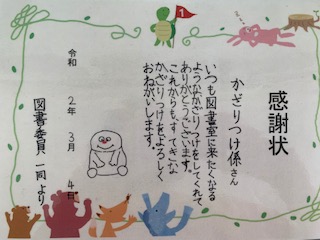 感謝状
かざりつけ係さん
いつも図書室に来たくなる
ようなかざりつけをしてくれて
ありがとうございます。
これからも、すてきな
かざりつけをよろしく
おねがいします。
令和 2年 3月 4日
図書委員一同より
1